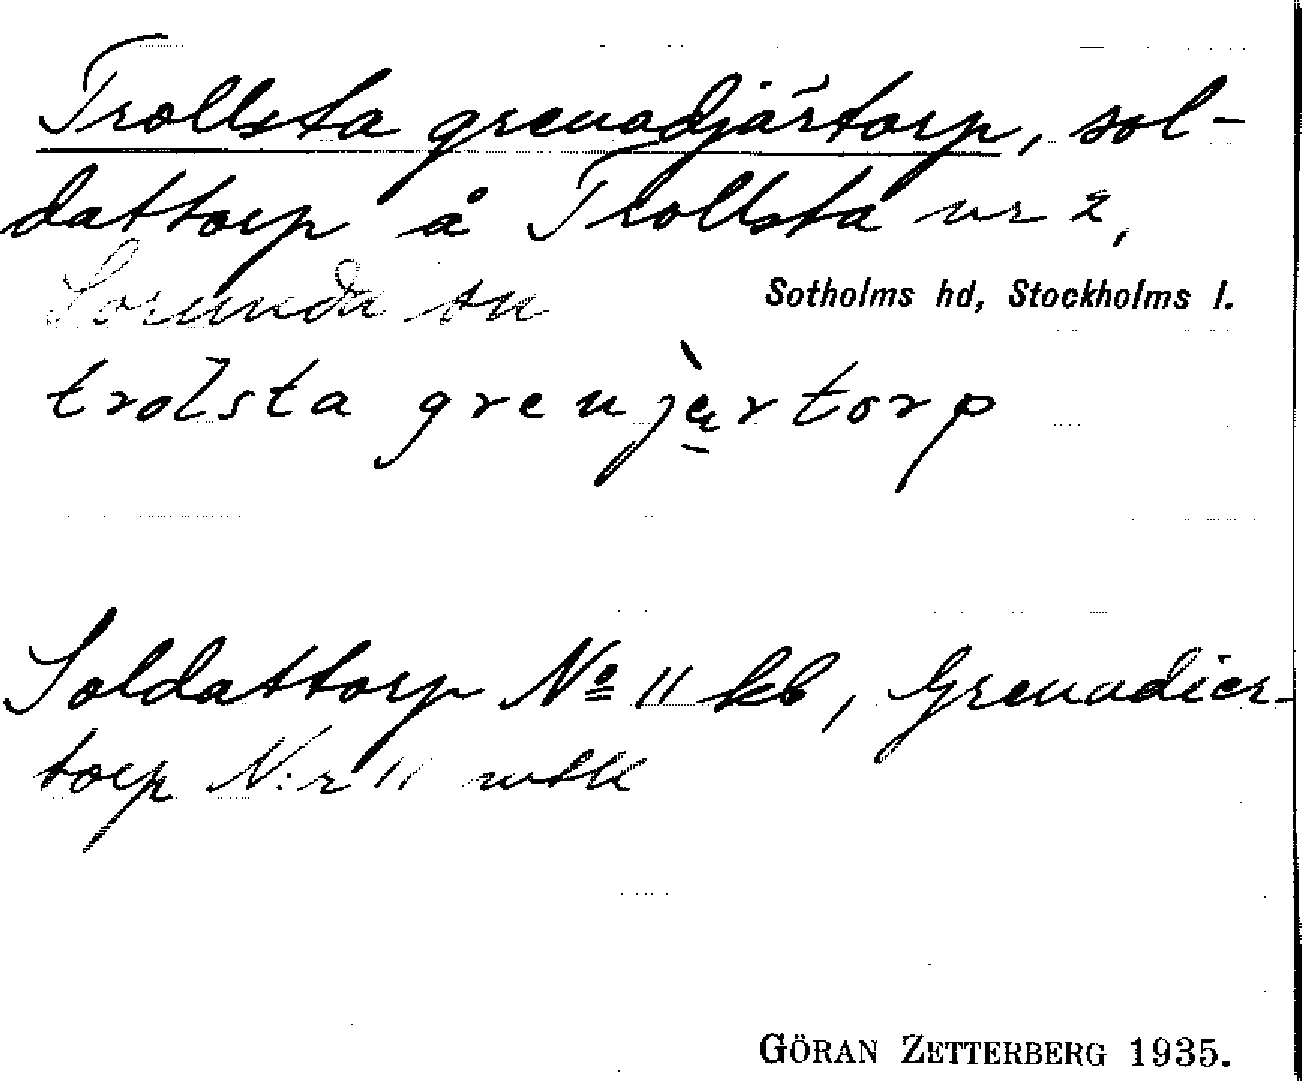 Trollsta grenadjärtorp, sol-
dattorp å Trollsta nr 2,
Sorunda sn Sotholms hd, Stockholms l.
trolsta grenjàrtorp
Soldattorp Nº 11 kb, Grenadier-
torp N:r 11 mtlk
GÖRAN ZETTERBERG 1935.